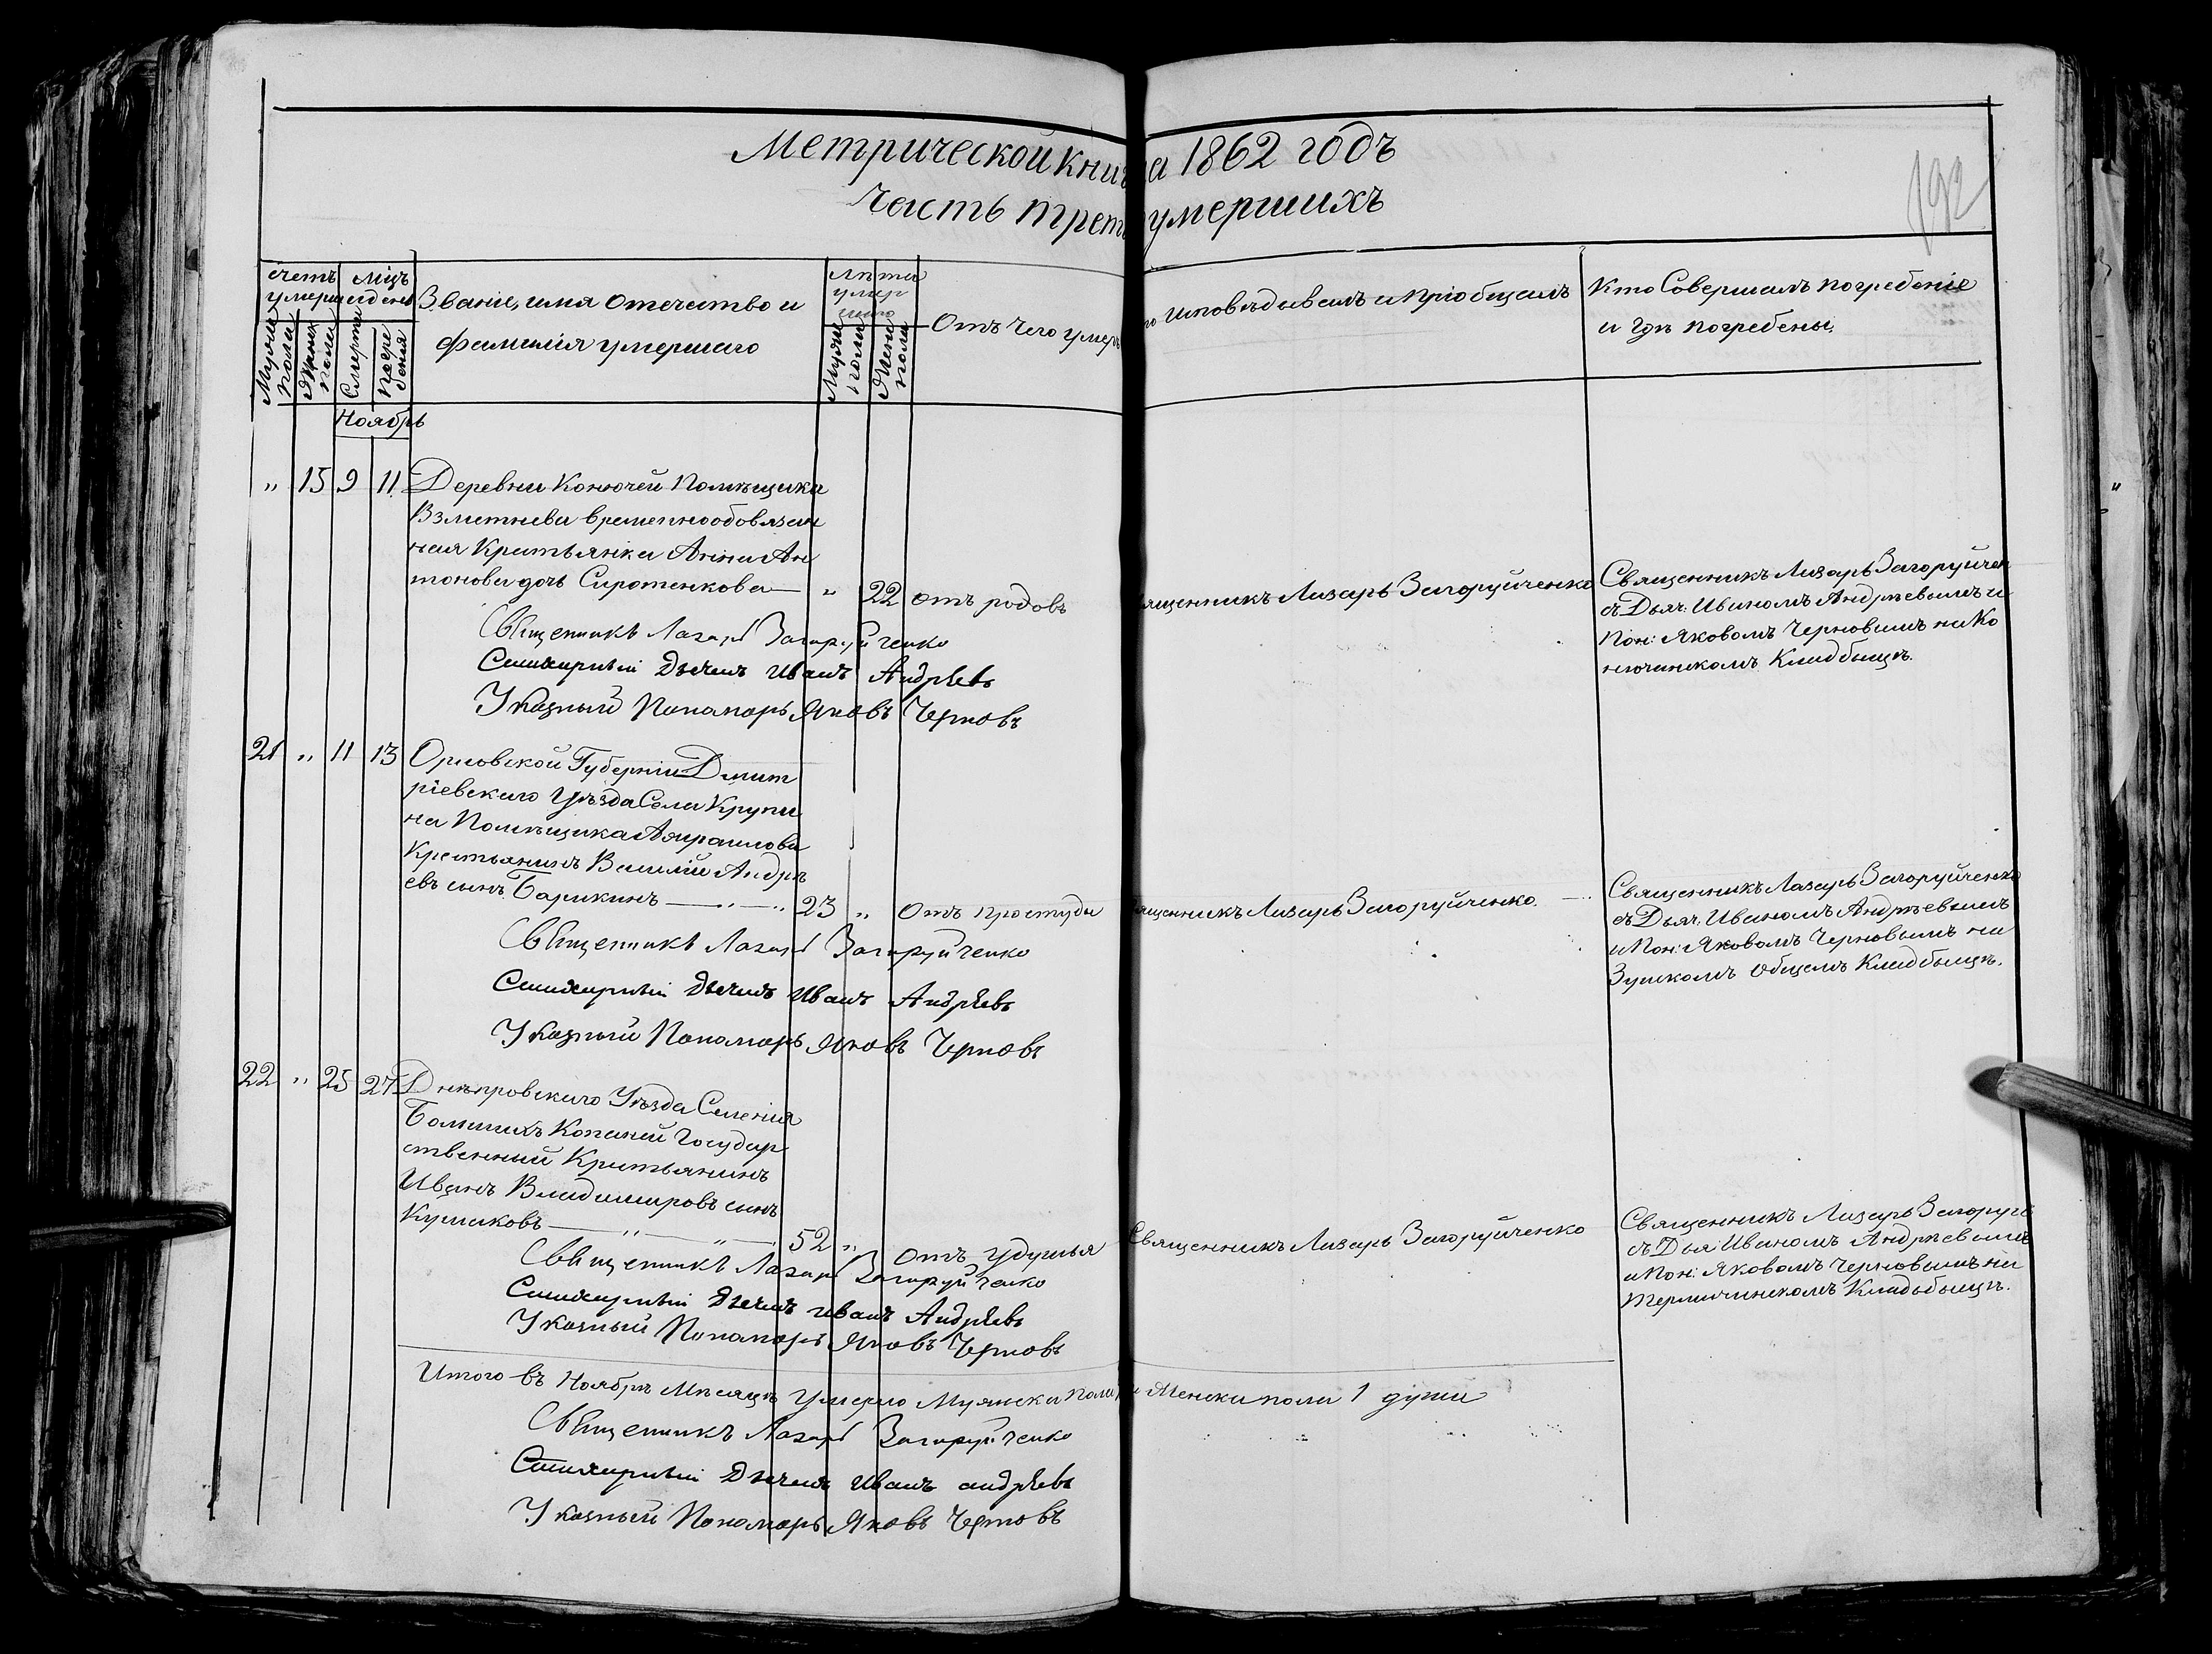 Метрической книга 1862 годъ
Часть трет умершихъ
192
Счетъ умерш
Мцъ и день
Званіе, имя отечество и
фамилія умершаго
Лѣта умер шаго
Отъ чего умеръ
исповѣдывалъ и пріобщалъ
Кто Совершалъ погребеніе
и гдѣ погребены.
Мужск пола
Женск пола
Смерти
Погре бенія
Мужск пола
Женск пола
Ноябрь
" 15 9 11 Деревни Конючей Помѣщика
Взметнева временнообовязан
ная Крестьянка Анна Ан
тонова дочь Сиротенкова — " 22 отъ родовъ
ященникъ Лазарь Загоруйченко
Священникъ Лазарь Загоруйчен
съ Дьяч: Иваномъ Андреевымъ и
Пон: Яковомъ Черновымъ на Ко
нючинскомъ Кладбыщѣ.
Священникъ Лазарь Загоруйченко
Стихарный Дьячекъ Иванъ Андреевъ
Указный Пономарь Яковъ Черновъ
21 " 11 13 Орловской Губерніи Дмит
ріевскаго Уѣзда Села Крупи
на Помѣщика
Крестьянинъ Василій Андрѣ
евъ сынъ Барикинъ — " — " 23 " Отъ простуды
ященникъ Лазарь Загоруйченко.
Священникъ Лазарь Загоруйченко
съ Дьяч: Иваномъ Андрѣевымъ
и Пон: Яковомъ Черновымъ на
общемъ Кладбыщѣ.
Священникъ Лазарь Загоруйченко
Стихарный Дьячекъ Иванъ Андреевъ
Указный Пономарь Яковъ Черновъ
22 " 25 27 Днѣпровскаго Уѣзда Селенія
Большихъ Копаней Государ
ственный Крестьянинъ
Иванъ Владимировъ сынъ
Куликовъ — " — " — 52 " Отъ удушья
Священникъ Лазарь Загоруйченко
Священникъ Лазарь Загоруйч
съ Дья: Иваномъ Андрѣевымъ
и Пон: Яковомъ Черновымъ на
Кладьбыщѣ.
Священникъ Лазарь Загоруйченко
Стихарный Дьячекъ Иванъ Андреевъ
Указный Пономарь Яковъ Черновъ
Итого въ Ноябрѣ Мѣсяцѣ Умерло Мужска пола Женска пола 1 душа
Священникъ Лазарь Загоруйченко
Стихарный Дьячекъ Иванъ андреевъ
Указный Пономарь Яковъ Черновъ